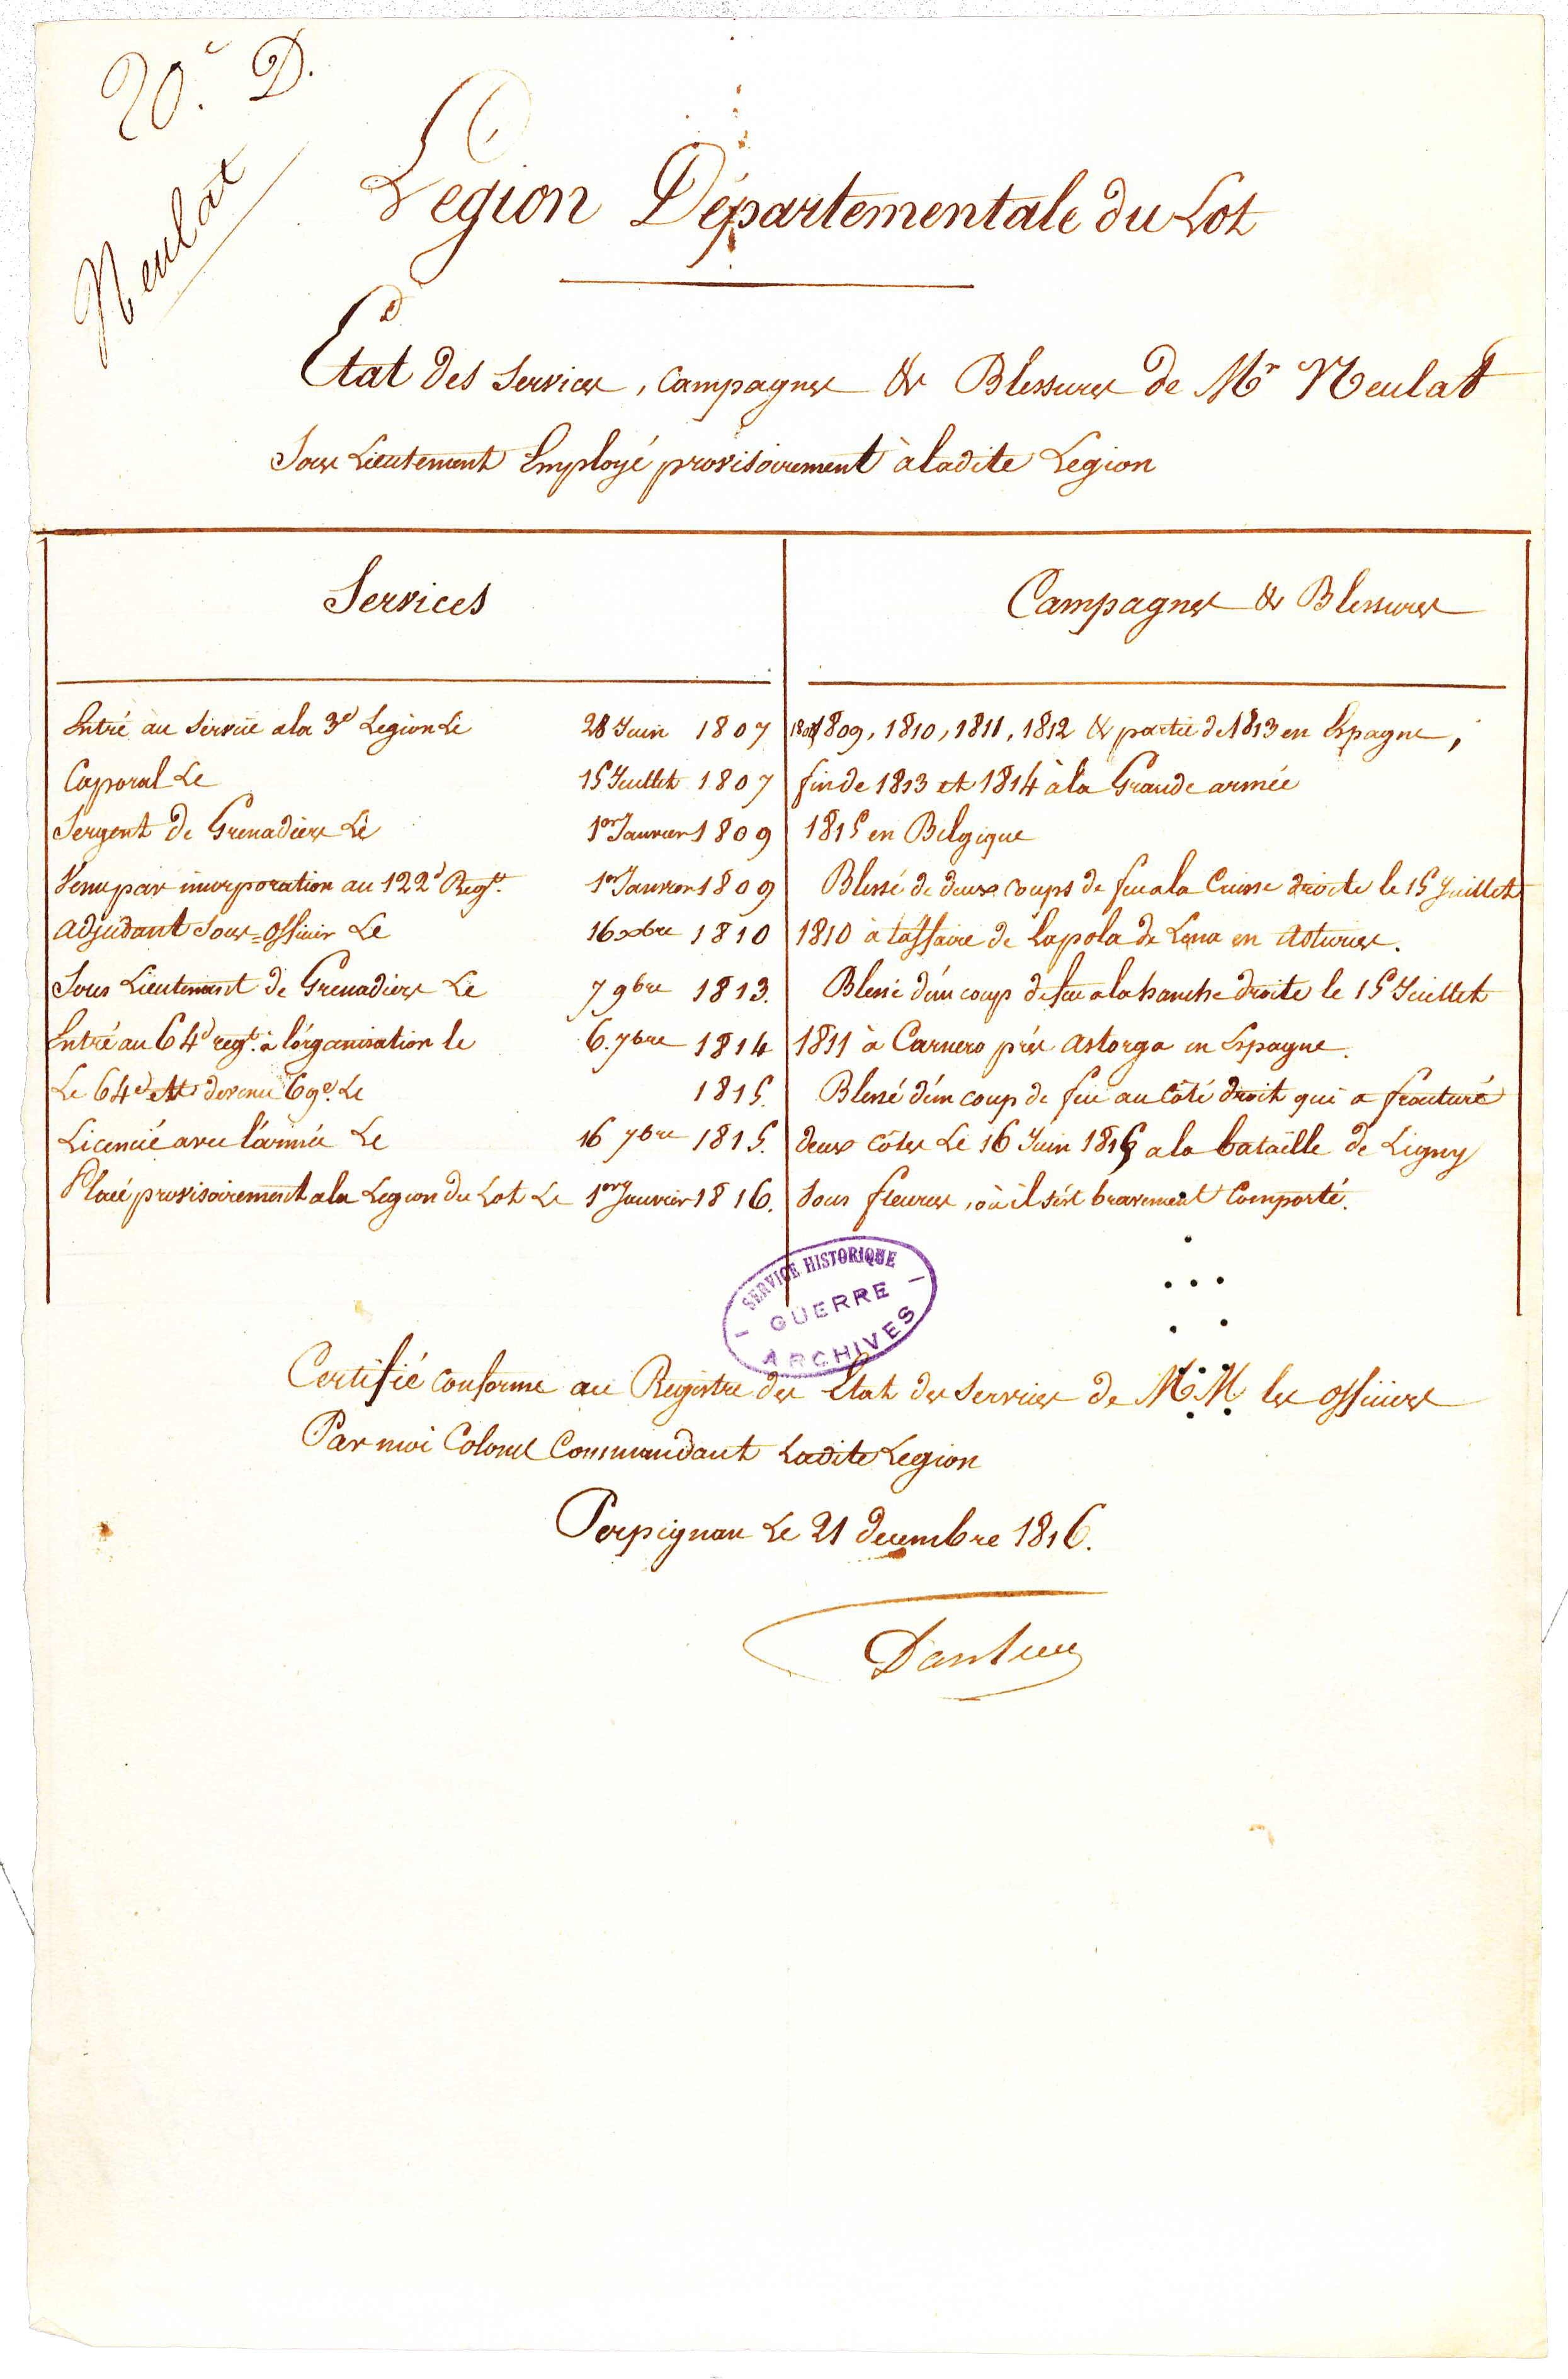 20.e D.
Neulat
Legion Départementale du Lot
Etat des Services, Campagnes & Blessures de Mr Neulat
Sous Lieutenant Employé provisoirement à ladite Legion
Services
Campagnes & Blessures
Entré au Service a la 3e Legion Le 28 Juin 1807
Caporal Le 15 Juillet 1807
Sergent de Grenadiers Le 1er Janvier 1809
Venu par incorporation au 122e Regt. 1er Janvier 1809
adjudant Sous=officier Le 16 xbre 1810
Sous Lieutenant de Grenadiers Le 7 9bre 1813.
Entré au 64e regt. à l'organisation le 6. 7bre 1814
Le 64e devenu 69e. Le 1815.
Licencié avec l'armée Le 16 7bre 1815.
Placé provisoirement a la Legion du Lot Le 1er Janvier 1816.
1808 1809, 1810, 1811, 1812 & partie de 1813 en Espagne,
fin de 1813 et 1814 à la Grande armée
1815 en Belgique
Blessé de deux coups de feu a la Cuisse droite le 15 Juillet
1810 à l'affaire de Lapola de Lena en Asturies.
Blessé d'un coup de feu a la hanche droite le 15 Juillet
1811 à Carnero près astorga en Espagne.
Blessé d'un coup de feu au côté droit qui a fracturé
deux côtes Le 16 Juin 1815 a la bataille de Ligny
Sous fleurus, où il s'est bravement Comporté.
SERVICE HISTORIQUE
- GUERRE -
ARCHIVES
Certifié conforme au Registre des Etat des Services de M.M. les officiers
Par moi Colonel Commandant Ladite Legion
Perpignan Le 21 decembre 1816.